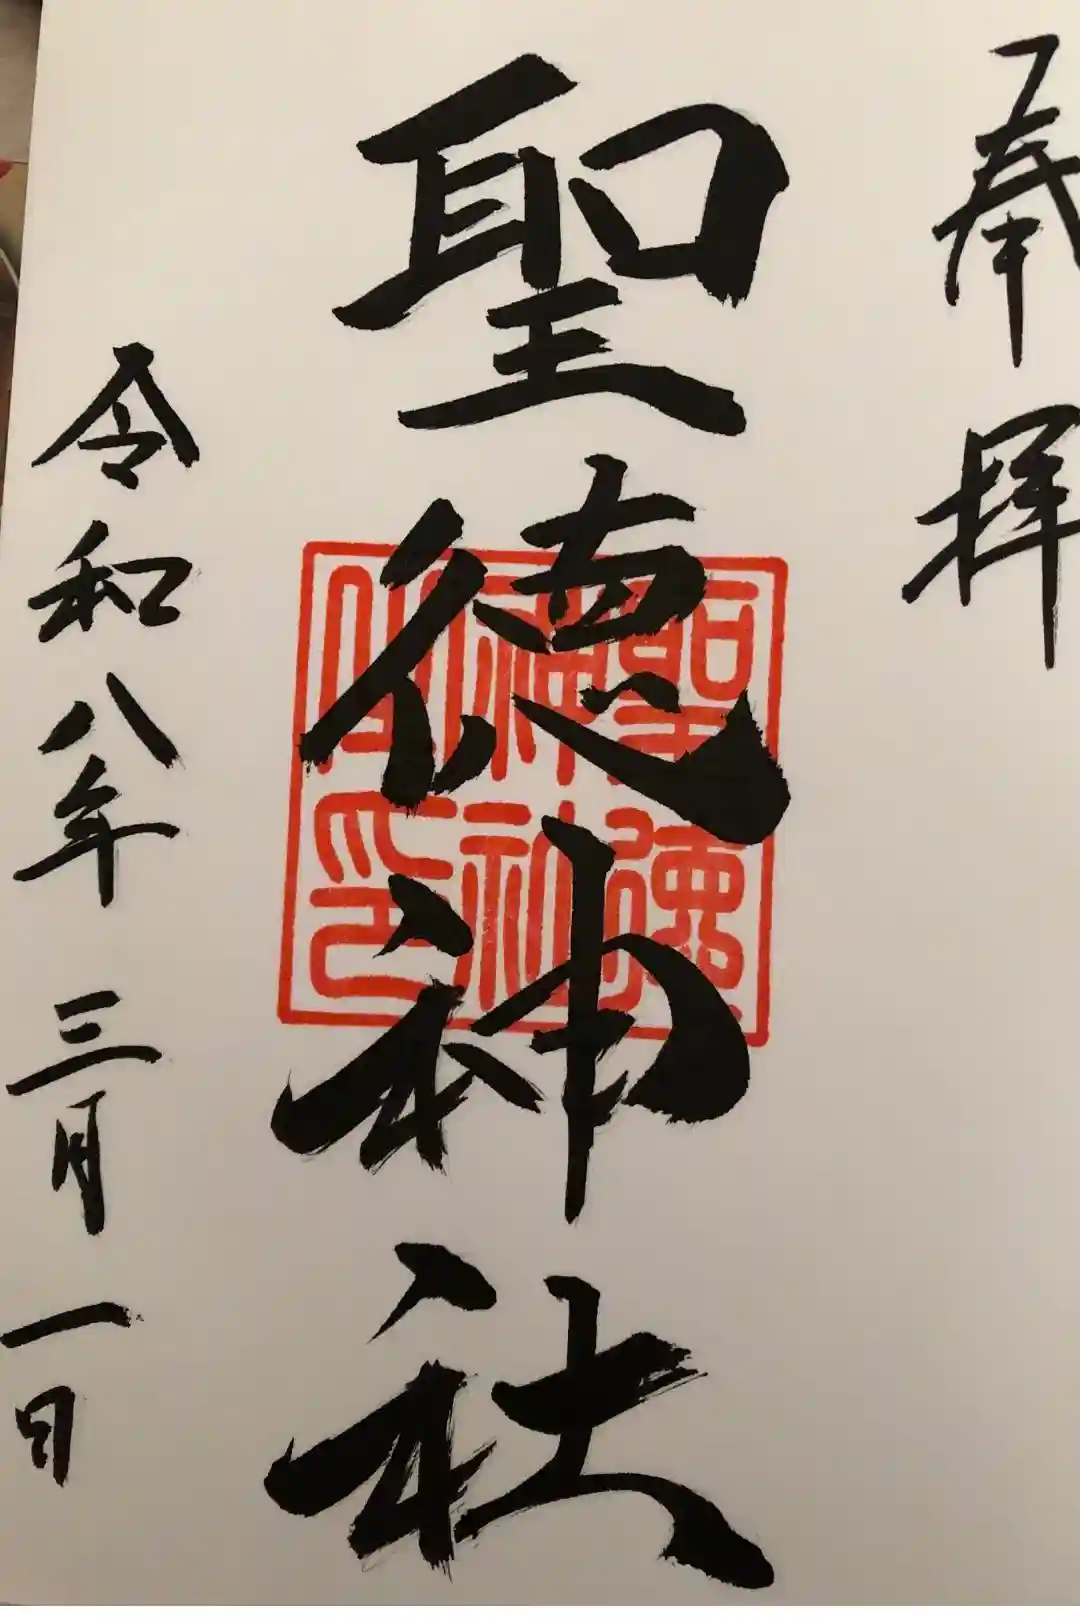 奉拝
聖徳神社
聖德神社之印
令和八年三月一日